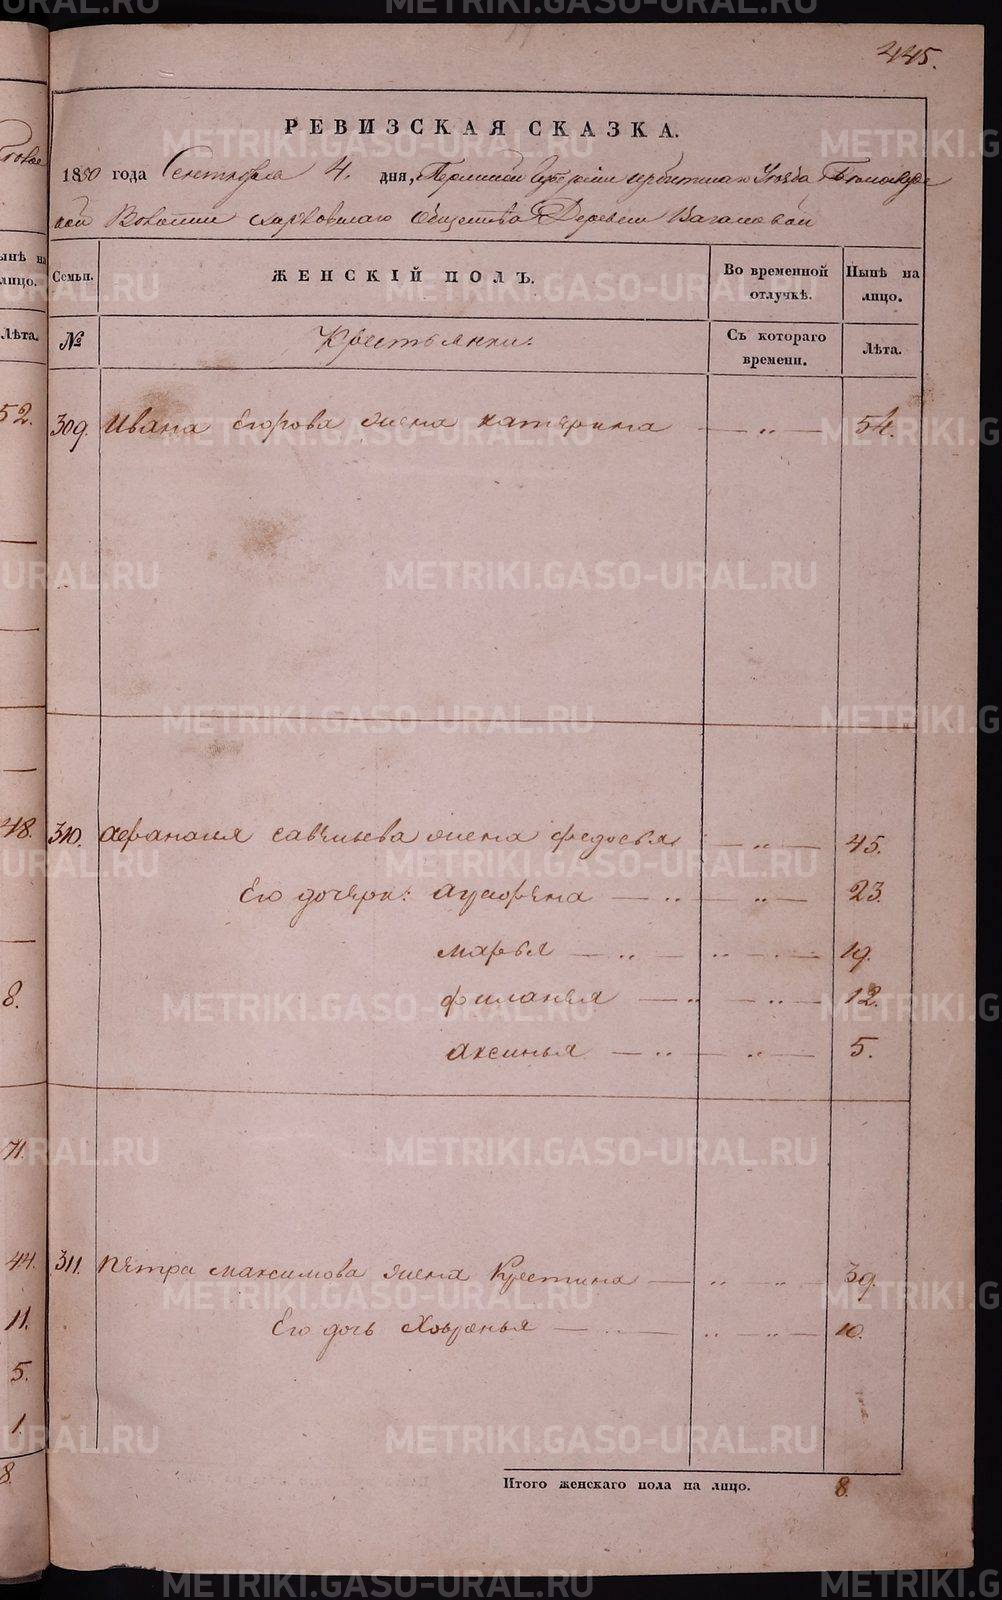 445.
РЕВИЗСКАЯ СКАЗКА.
1850 года Сентября 4. дня, Пермской Губернии Ирбитскаго Уезда
кой Волости Харловскаго Общества Деревни Вагановой
Семьи.
ЖЕНСКІЙ ПОЛЪ.
Во временной отлучкѣ.
Нынѣ на лицо.
№
Крестьянки.
Съ котораго времени.
Лѣта.
309. Ивана Егорова жена катерина — „ — 54.
310. Афанасия савельева жена федосья — „ — 45.
Его дочери: Аграфена — „ — „ — 23.
марья — „ — „ — 19.
филанья — „ — „ — 12.
аксинья — „ — „ — 5.
311. Петра максимова жена Крестина — „ — „ — 39.
Его дочь Ховронья — „ — „ — 10.
Итого женскаго пола на лицо. 8.
ынѣ на
лицо.
Лѣта.
52.
48.
8.
71.
44.
11.
5.
1.
8.
METRIKI.GASO-URAL.RU